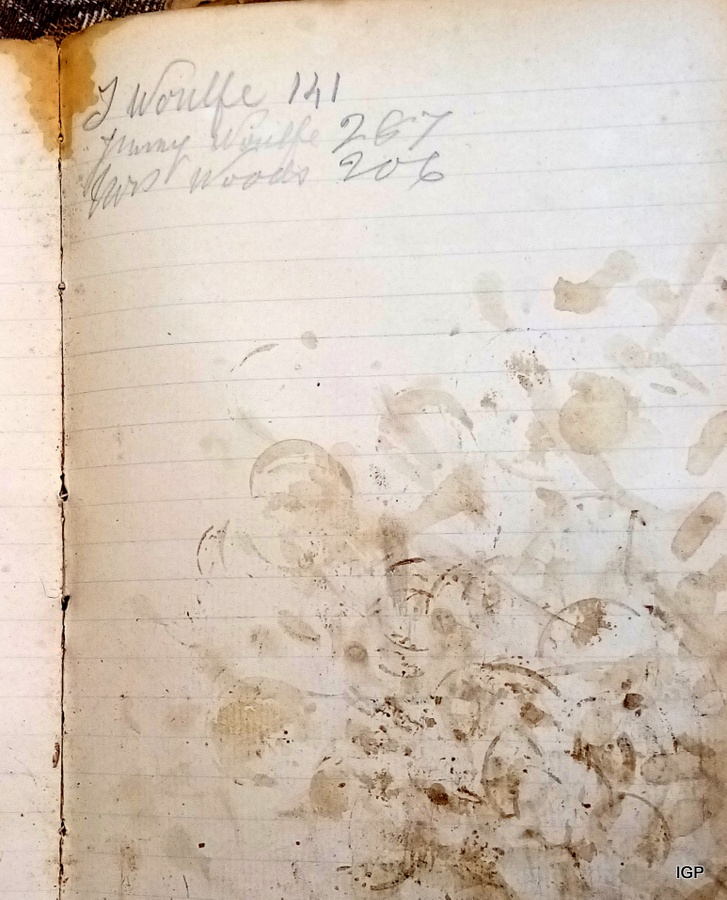 J Woulfe 141
Jimmy Woulfe 267
Mrs Woods 206
IGP